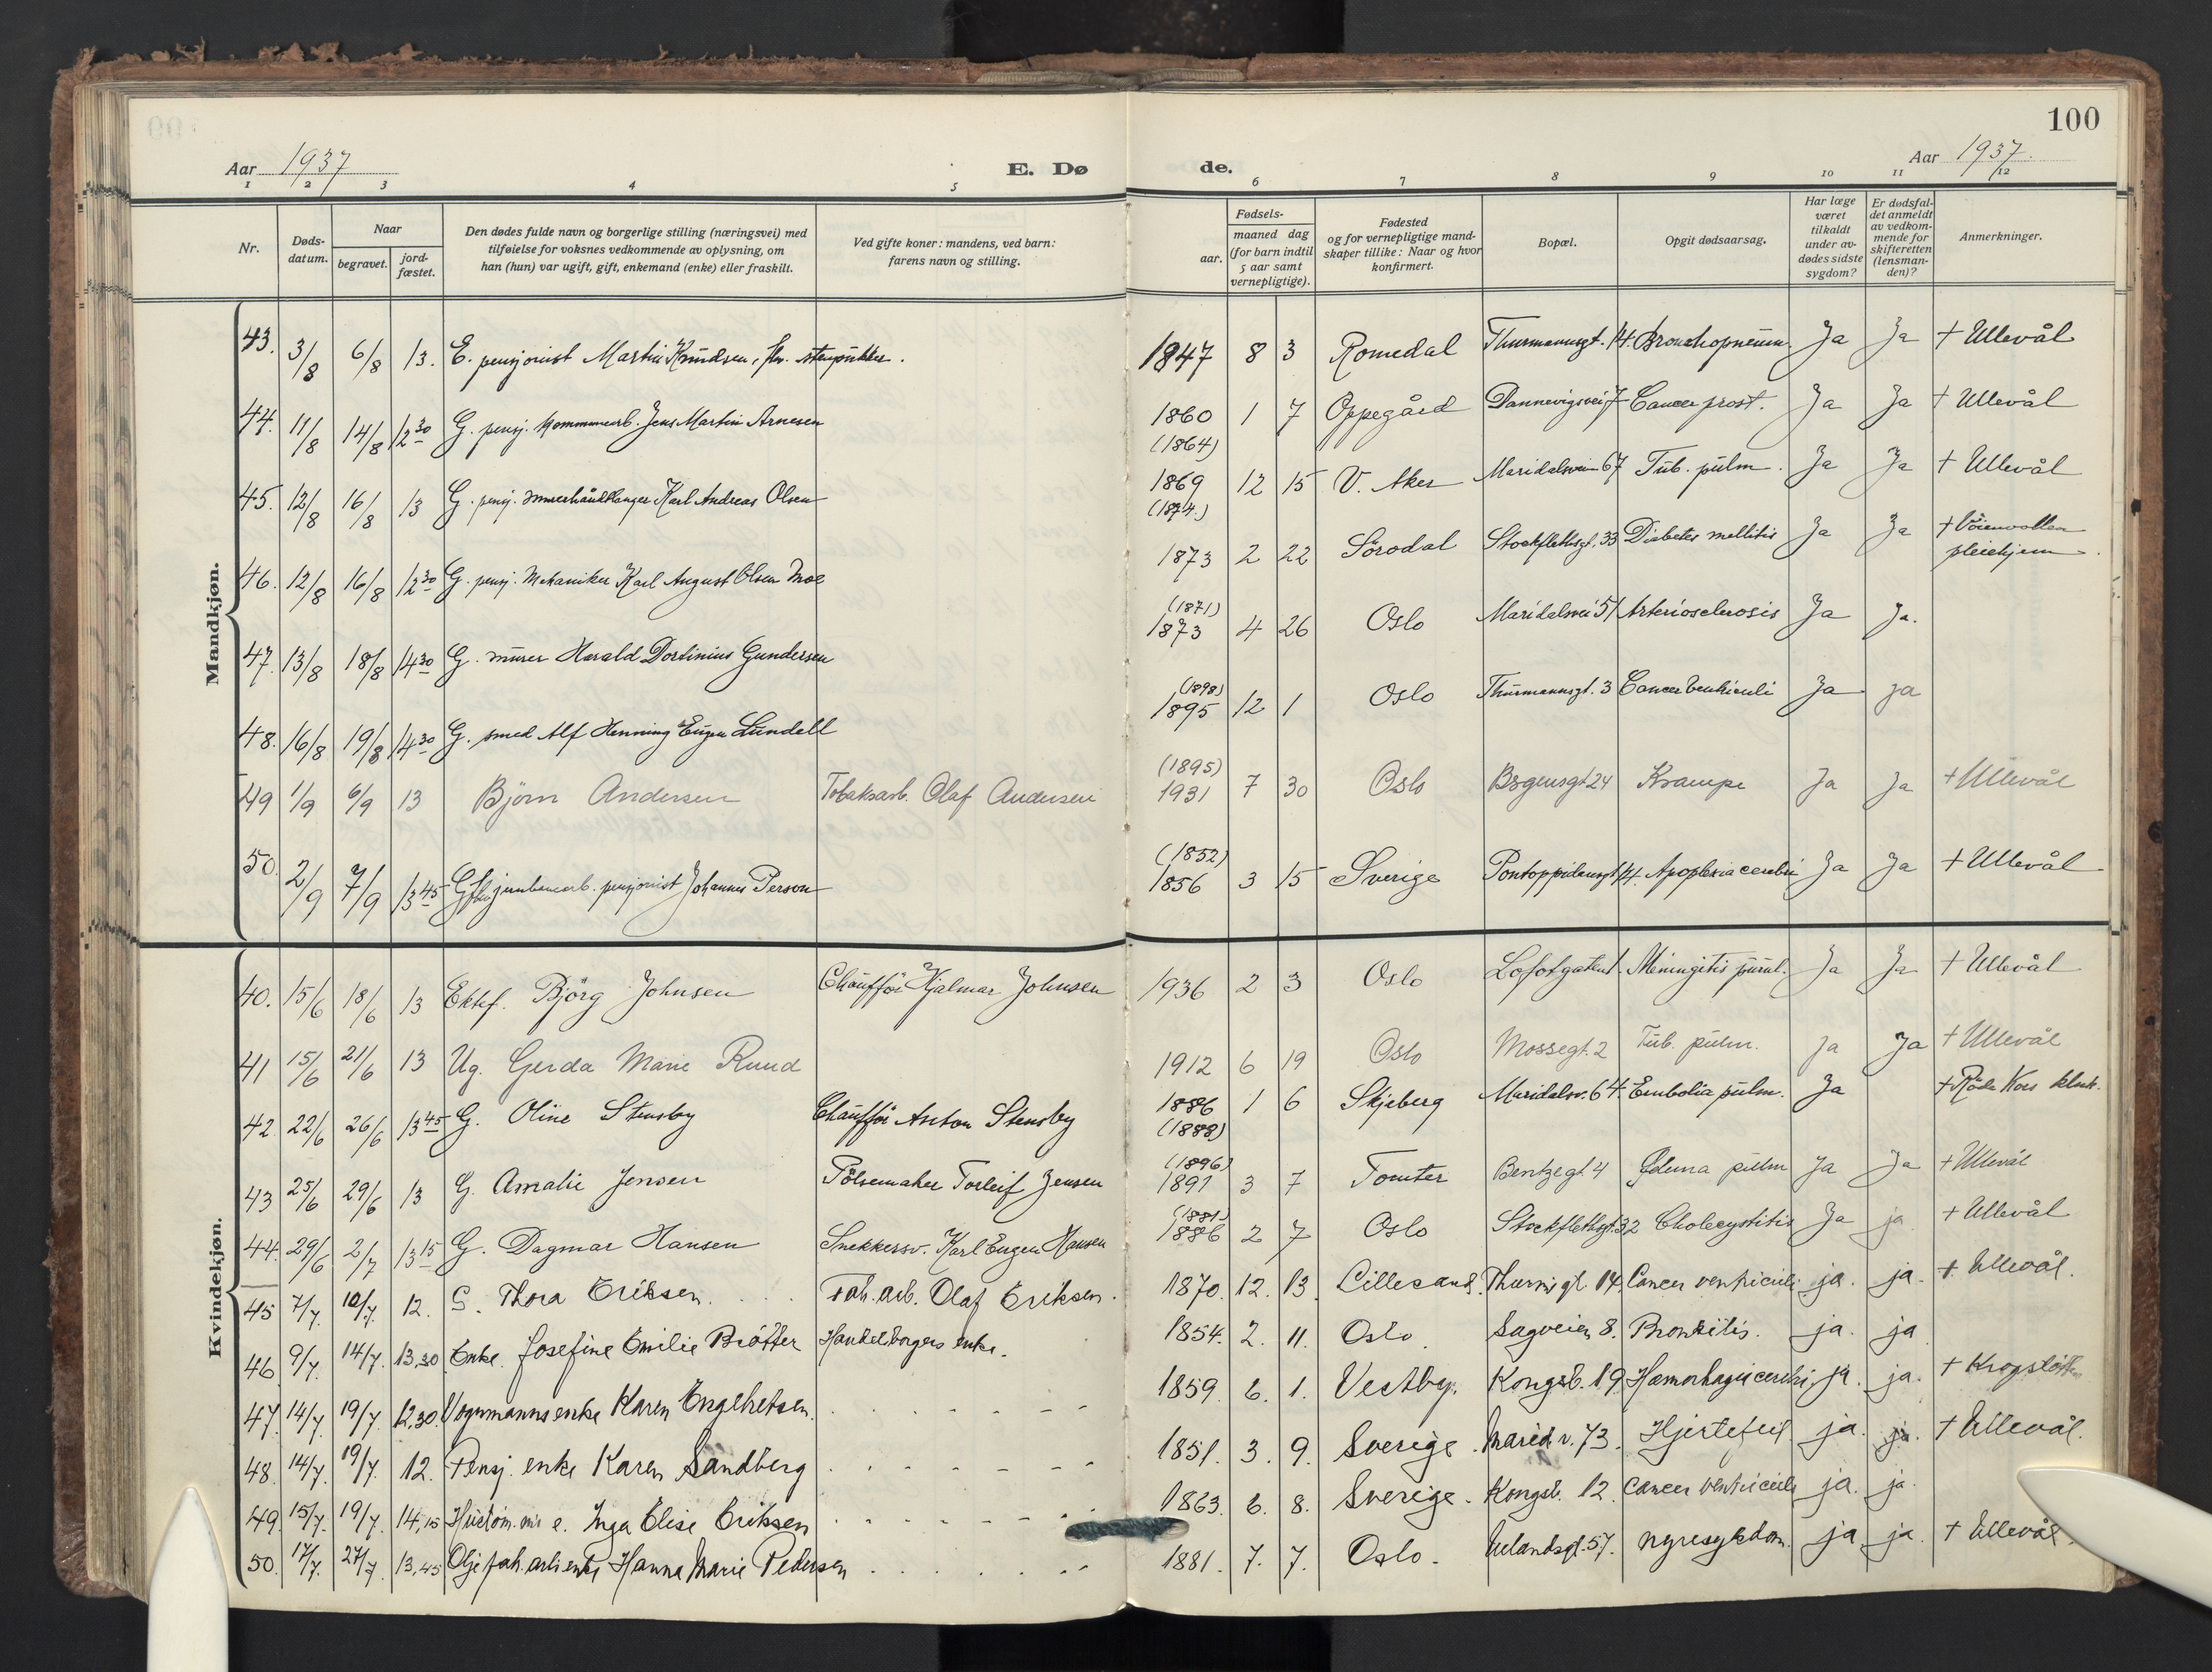 100
Aar 1937 E. Dø de. Aar 1937.
1 2 3 4 5 6 7 8 9 10 11 12
Nr.
Døds-
datum.
Naar
begravet.
jord-
fæstet.
Den dødes fulde navn og borgerlige stilling (næringsvei) med
tilføielse for voksnes vedkommende av oplysning, om
han (hun) var ugift, gift, enkemand (enke) eller fraskilt.
Ved gifte koner: mandens, ved barn:
farens navn og stilling.
Fødsels-
aar.
maaned dag
(for barn indtil
5 aar samt
vernepligtige).
Fødested
og for vernepligtige mand-
skaper tillike: Naar og hvor
konfirmert.
Bopæl.
Opgit dødsaarsag.
Har læge
været
tilkaldt
under av-
dødes sidste
sygdom?
Er dødsfal-
det anmeldt
av vedkom-
mende for
skifteretten
(lensman-
den)?
Anmerkninger.
Mandkjøn.
43. 3/8 6/8 13. E. pensjonist Martin Knudsen, fhv. stenpukker. 1847 8 3 Romedal Thurmannsgt. 14. Bronchopneum. Ja Ja + Ullevål
44. 11/8 14/8 12 30 G. pensj. kommunearb. Jens Martin Arnesen 1860 1 7 Oppegård Dannevigsvei 7 Cancer prost. Ja Ja + Ullevål
(1864)
45. 12/8 16/8 13 G. pensj. murerhåndlanger Karl Andreas Olsen 1869 12 15 V. Aker Maridalsveien 67 Tub. pulm. Ja Ja + Ullevål
(1874.)
46. 12/8 16/8 12 30 G. pensj. Mekaniker Karl August Olsen Moe 1873 2 22 Sörodal Stockflethsgt. 33 Diabetes mellitis Ja Ja + Vöienvollen
pleiehjem.
(1871)
47. 13/8 18/8 14 30 G. murer Harald Dortinius Gundersen 1873 4 26 Oslo Maridalsvei 51 Arteriosclerosis Ja Ja.
(1898)
48. 16/8 19/8 14 30 G. smed Alf Henning Eugen Lundell 1895 12 1 Oslo Thurmannsgt. 3 Cancer ventriculi Ja ja
(1895)
49 1/9 6/9 13 Björn Andersen Tobaksarb. Olaf Andersen 1931 7 30 Oslo Brgensgt 24 Krampe Ja Ja + Ullevål
(1852)
50. 2/9 7/9 13 45 G. fhv. jernbanearb. pensjonist Johannes Person 1856 3 15 Sverige Pontoppidansgt 14. Apoplexia cerebri Ja Ja + Ullevål
Kvindekjøn.
40. 15/6 18/6 13 Ektef. Björg Johnsen Chaufför Hjalmar Johnsen 1936 2 3 Oslo Lofotgaten 1. Meningitis purul. Ja Ja + Ullevål
41 15/6 21/6 13 Ug. Gerda Marie Ruud 1912 6 19 Oslo Mossegt. 2 Tub. pulm. Ja Ja + Ullevål
42. 22/6 26/6 13 45 G. Oline Stensby Chaufför Anton Stensby 1886 1 6 Skjeberg Maridalsv. 64. Embolia pulm. Ja + Röde Kors klinik.
(1888)
(1896)
43 25/6 29/6 13 G. Amalie Jensen Pölsemaker Torleif Jensen 1891 3 7 Tomter Bentzegt 4 Ödema pulm Ja Ja + Ullevål
(1881)
44. 29/6 2/7 13 15 G. Dagmar Hansen Snekkersv. Karl Eugen Hansen 1886 2 7 Oslo Stockflethsgt. 32 Cholecystitis Ja ja + Ullevål
45 7/7. 10/7. 12. G. Thora Eriksen. Fab. arb. Olaf Eriksen. 1870. 12. 13. Lillesand. Thurmsgt 14. Cancer ventriculi ja. ja. + Ullevål.
46 9/7. 14/7. 13,30 Enke Josefine Emilie Brötter Handelsborgers enke. 1854. 2. 11. Oslo. Sagveien 8. Bronkitis. ja. ja
47. 14/7. 19/7. 12,30. Vognmannsenke Karen Engebretsen. 1859. 6. 1. Vestby. Kongsb. 19. Hæmorhagia cerebri ja. ja. + Krogstötten
48. 14/7. 19/7. 12. Pensj. enke Karen Sandberg 1851. 3. 9. Sverige. Marid v. 73. Hjertefeil ja. ja. + Ullevål.
49. 15/7. 19/7. 14,15 e. Inga Elise Eriksen 1863. 6. 8. Sverige. Kongsb. 12. Cancer ventriculi ja. ja.
50. 17/7. 27/7. 13,45 Oljefab. arb. enke Hanna Marie Pedersen 1881. 7. 7. Oslo. Uelandsgt. 57. Nyresykdom. ja ja. + Ullevål.